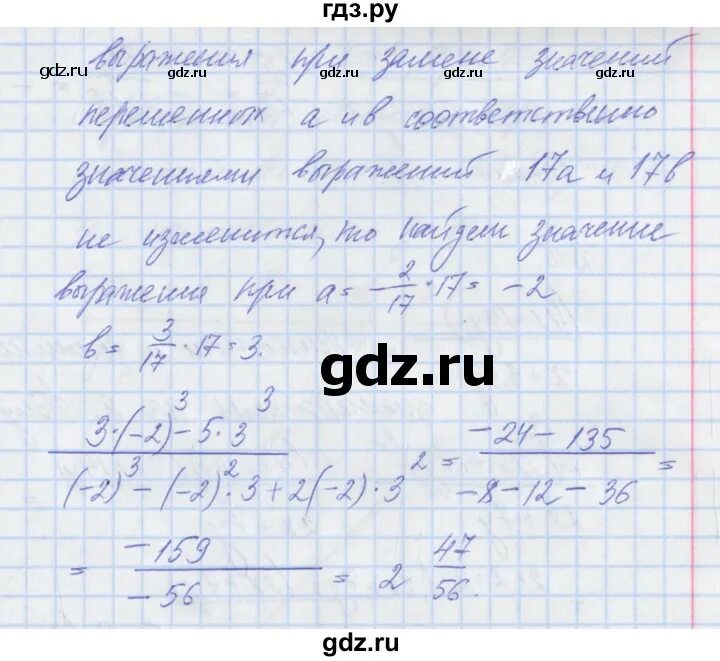 гдз.ру
выражения при замене значений
gdz.ru gdz.ru gdz.ru
переменных a и в соответственно
значениями выражений 17a и 17в
не изменится, то найдем значение
выражения при a = -2/17 · 17 = -2
в = 3/17 · 17 = 3.
gdz.ru
(3·(-2)³ - 5·3³)/((-2)³ - (-2)²·3 + 2(-2)·3²) = (-24 - 135)/(-8 - 12 - 36) =
= -159/-56 = 2 47/56.
gdz.ru